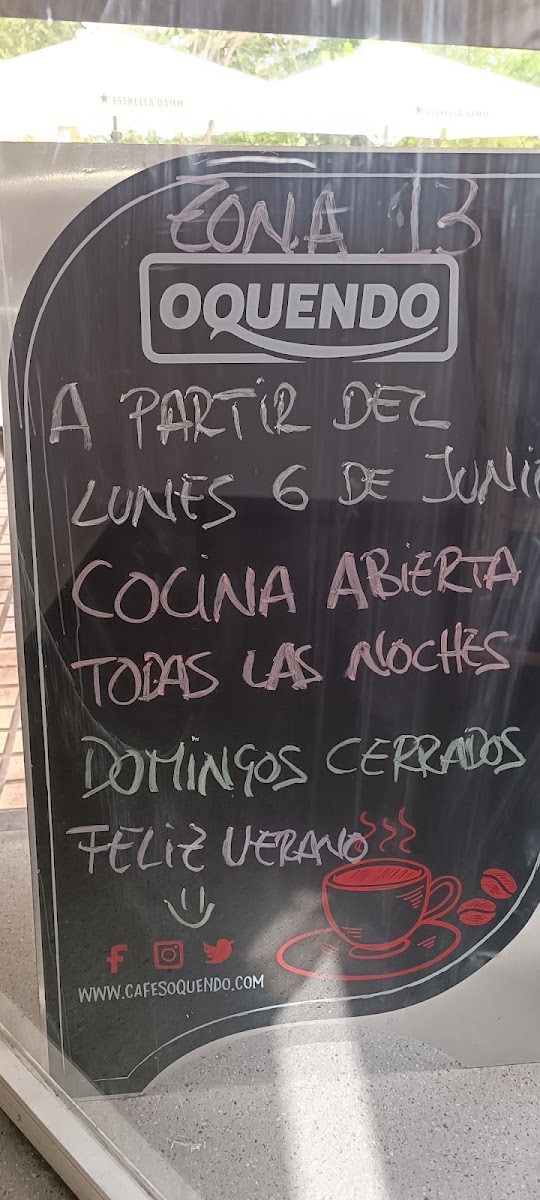 ★ ESTRELLA DAMM
★ ESTRELLA DAMM
ZONA 13
OQUENDO
A PARTIR DEL
LUNES 6 DE JUNIO
COCINA ABIERTA
TODAS LAS NOCHES
DOMINGOS CERRADOS
FELIZ VERANO
WWW.CAFESOQUENDO.COM